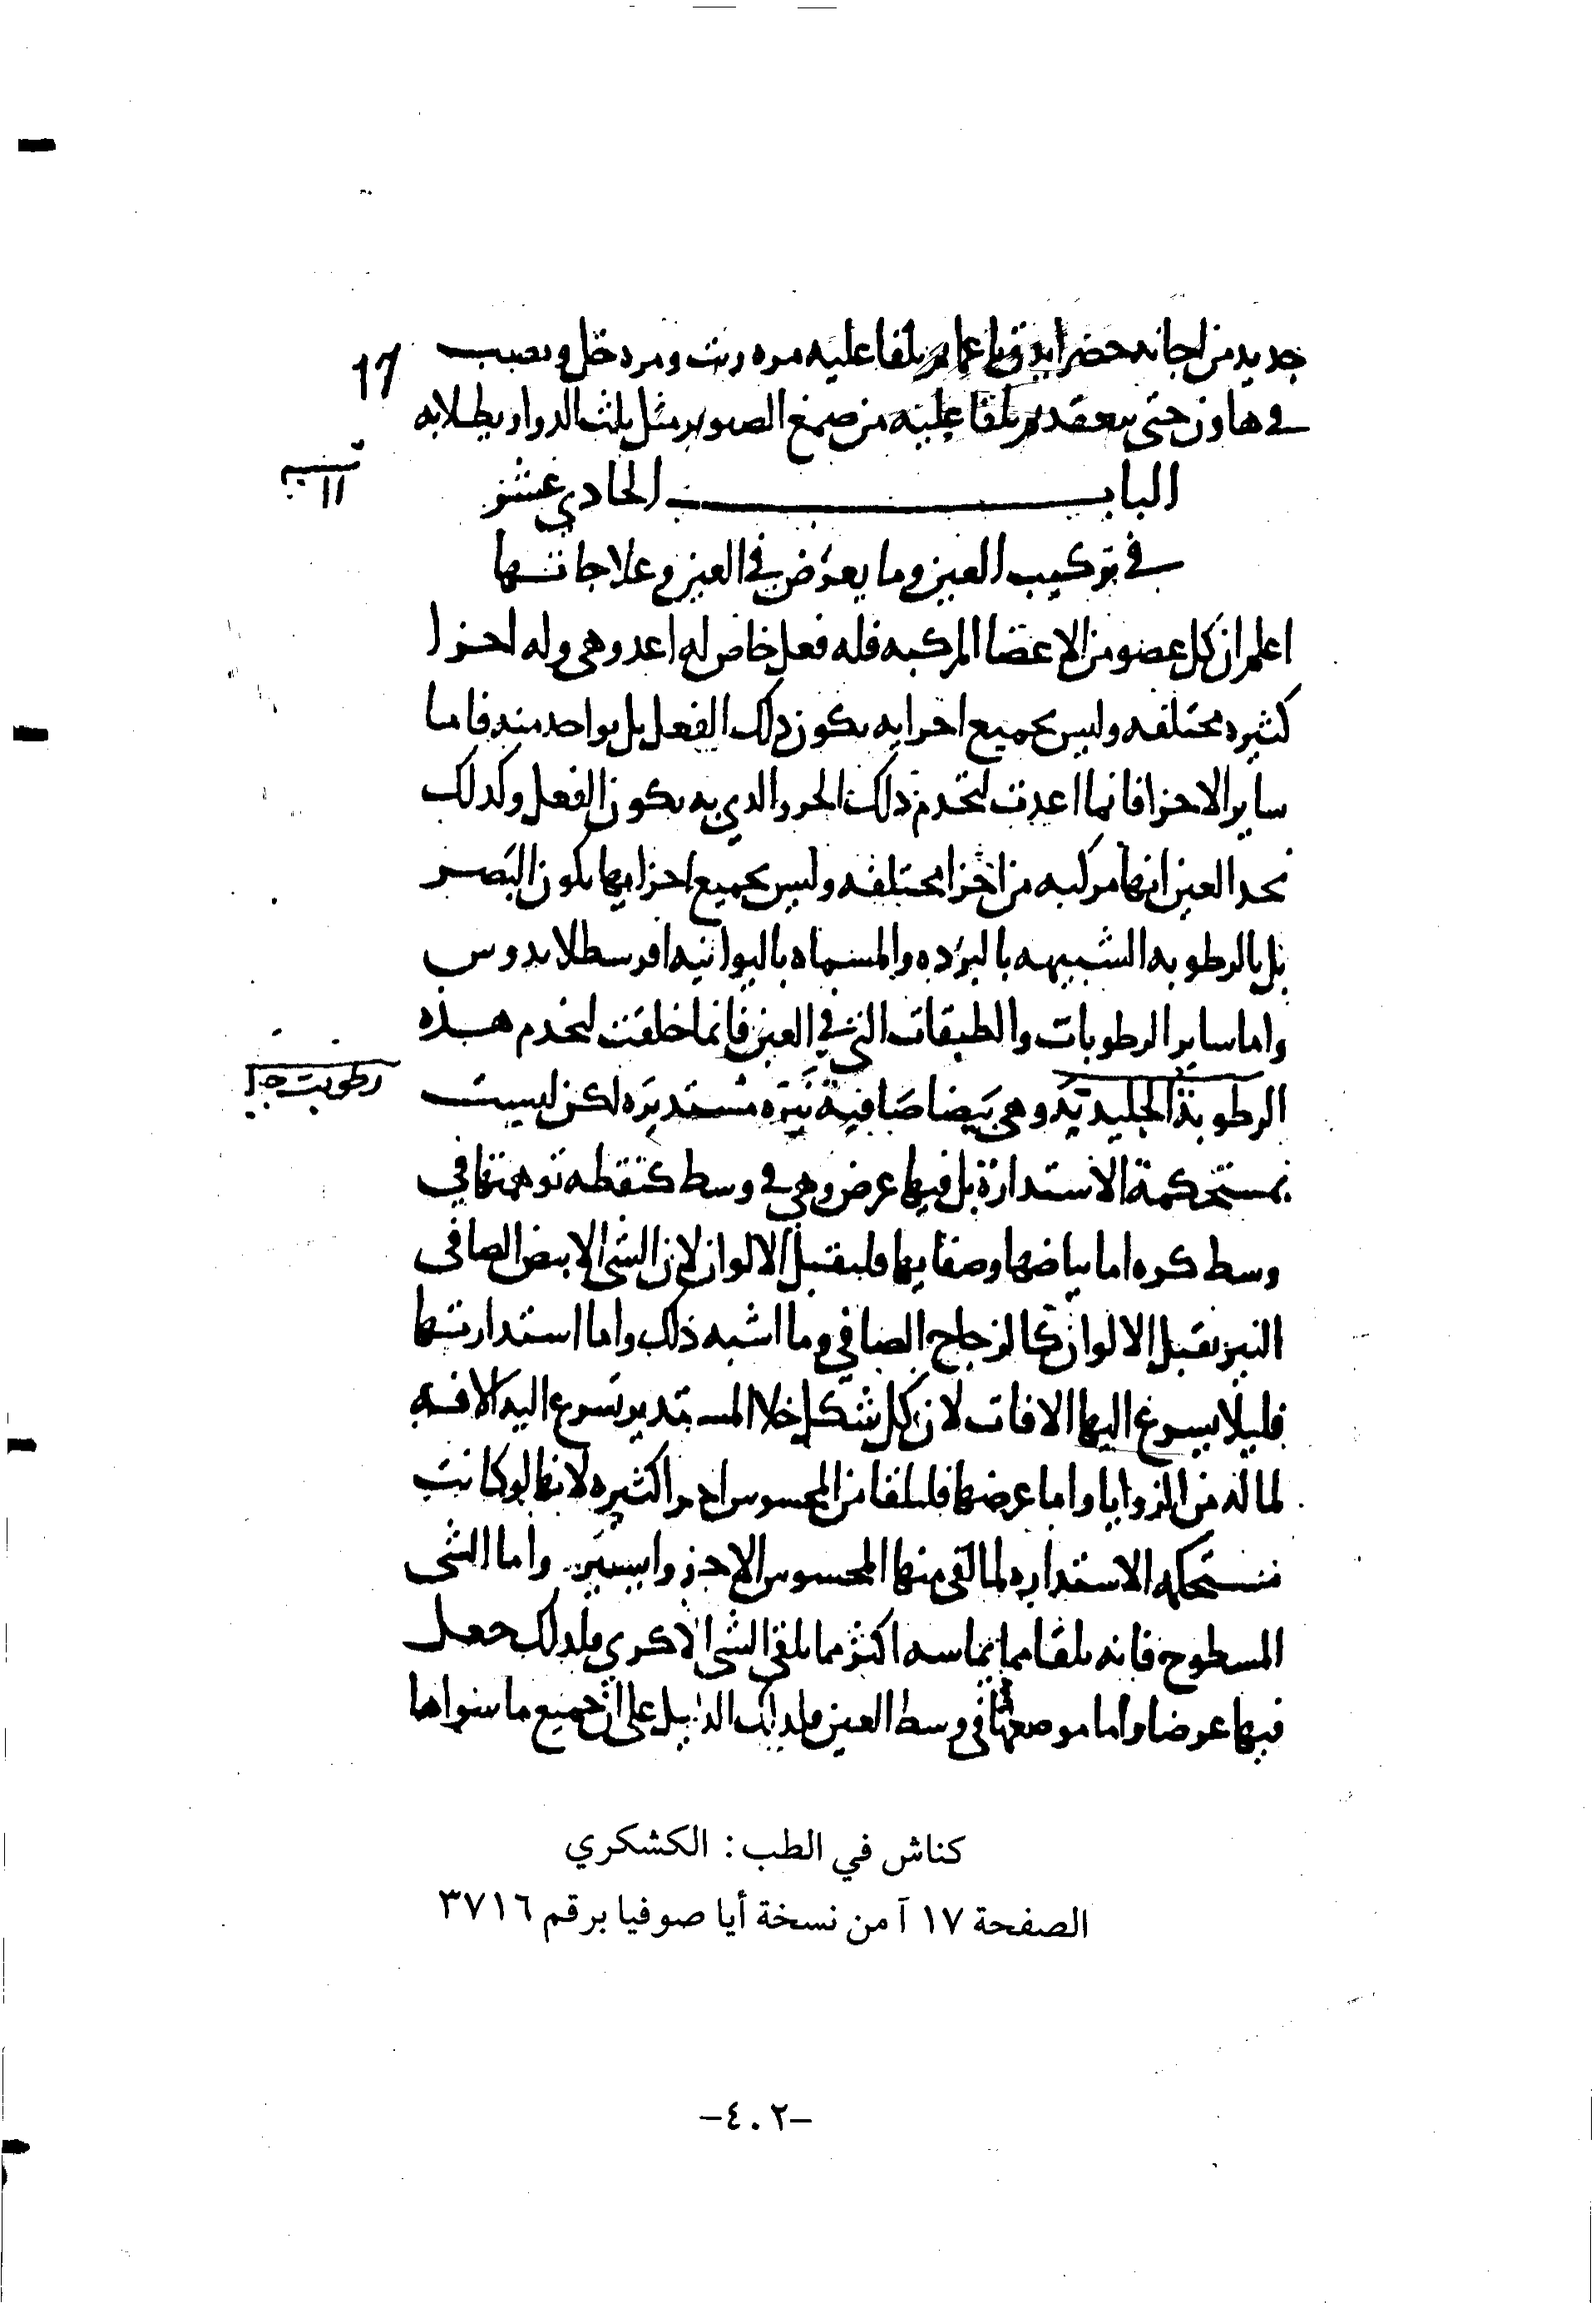 جديد من اجانه خضرا يلقا عليه مره زيت ومره خل ويصب
17
في هاون حتى ينعقد ثم يلقا عليه من صمغ الصنوبر مثل ثلث الدوا ويطلا به
الباب الحادي عشر
11
في تركيب العين وما يعرض في العين وعلاجاتها
اعلم ان كل عضو من الاعضا المركبه فله فعل خاص له اعد وهي وله اجزا
كثيره مختلفه وليس بجميع اجزايه يكون ذلك الفعل بل بواحد منه فاما
ساير الاجزا فانما اعدت لتخدم ذلك الجزو الذي به يكون الفعل وكذلك
نجد العين انها مركبه من اجزا مختلفه وليس بجميع اجزايها يكون البصر
بل بالرطوبه الشبيهه بالبرده والمسماه باليوانيه اقرسطلايدوس
واما ساير الرطوبات والطبقات التي في العين فانما خلقت لتخدم هذه
الرطوبة الجليدية وهي بيضا صافية نيره مستديره لكن ليست
رطوبت
بمستحكمة الاستدارة بل فيها عرض وهي في وسط كنقطه توهمتها في
وسط كره اما بياضها وصفايها فليقبل الالوان لان الشي الابيض الصافي
النير يقبل الالوان كالزجاج الصافي وما اشبه ذلك واما استدارتها
فليلا يسرع اليها الافات لان كل شكل خلا المستدير تسرع اليه الافه
لما له من الزوايا واما عرضها فليلقا من المحسوس اجزا كثيره لانها لو كانت
مستحكمه الاستداره لما لقي منها المحسوس الا جزوا يسير واما الشي
المسطوح فانه يلقا مما يماسه اكثر مما يلقي الشي الاكري فلذلك جعل
فيها عرضا واما موضعها في وسط العين فلذلك الدليل على ان جميع ما سواها
كناش في الطب : الكشكري
الصفحة ١٧ آ من نسخة أيا صوفيا برقم ٣٧١٦
-٤٠٢-